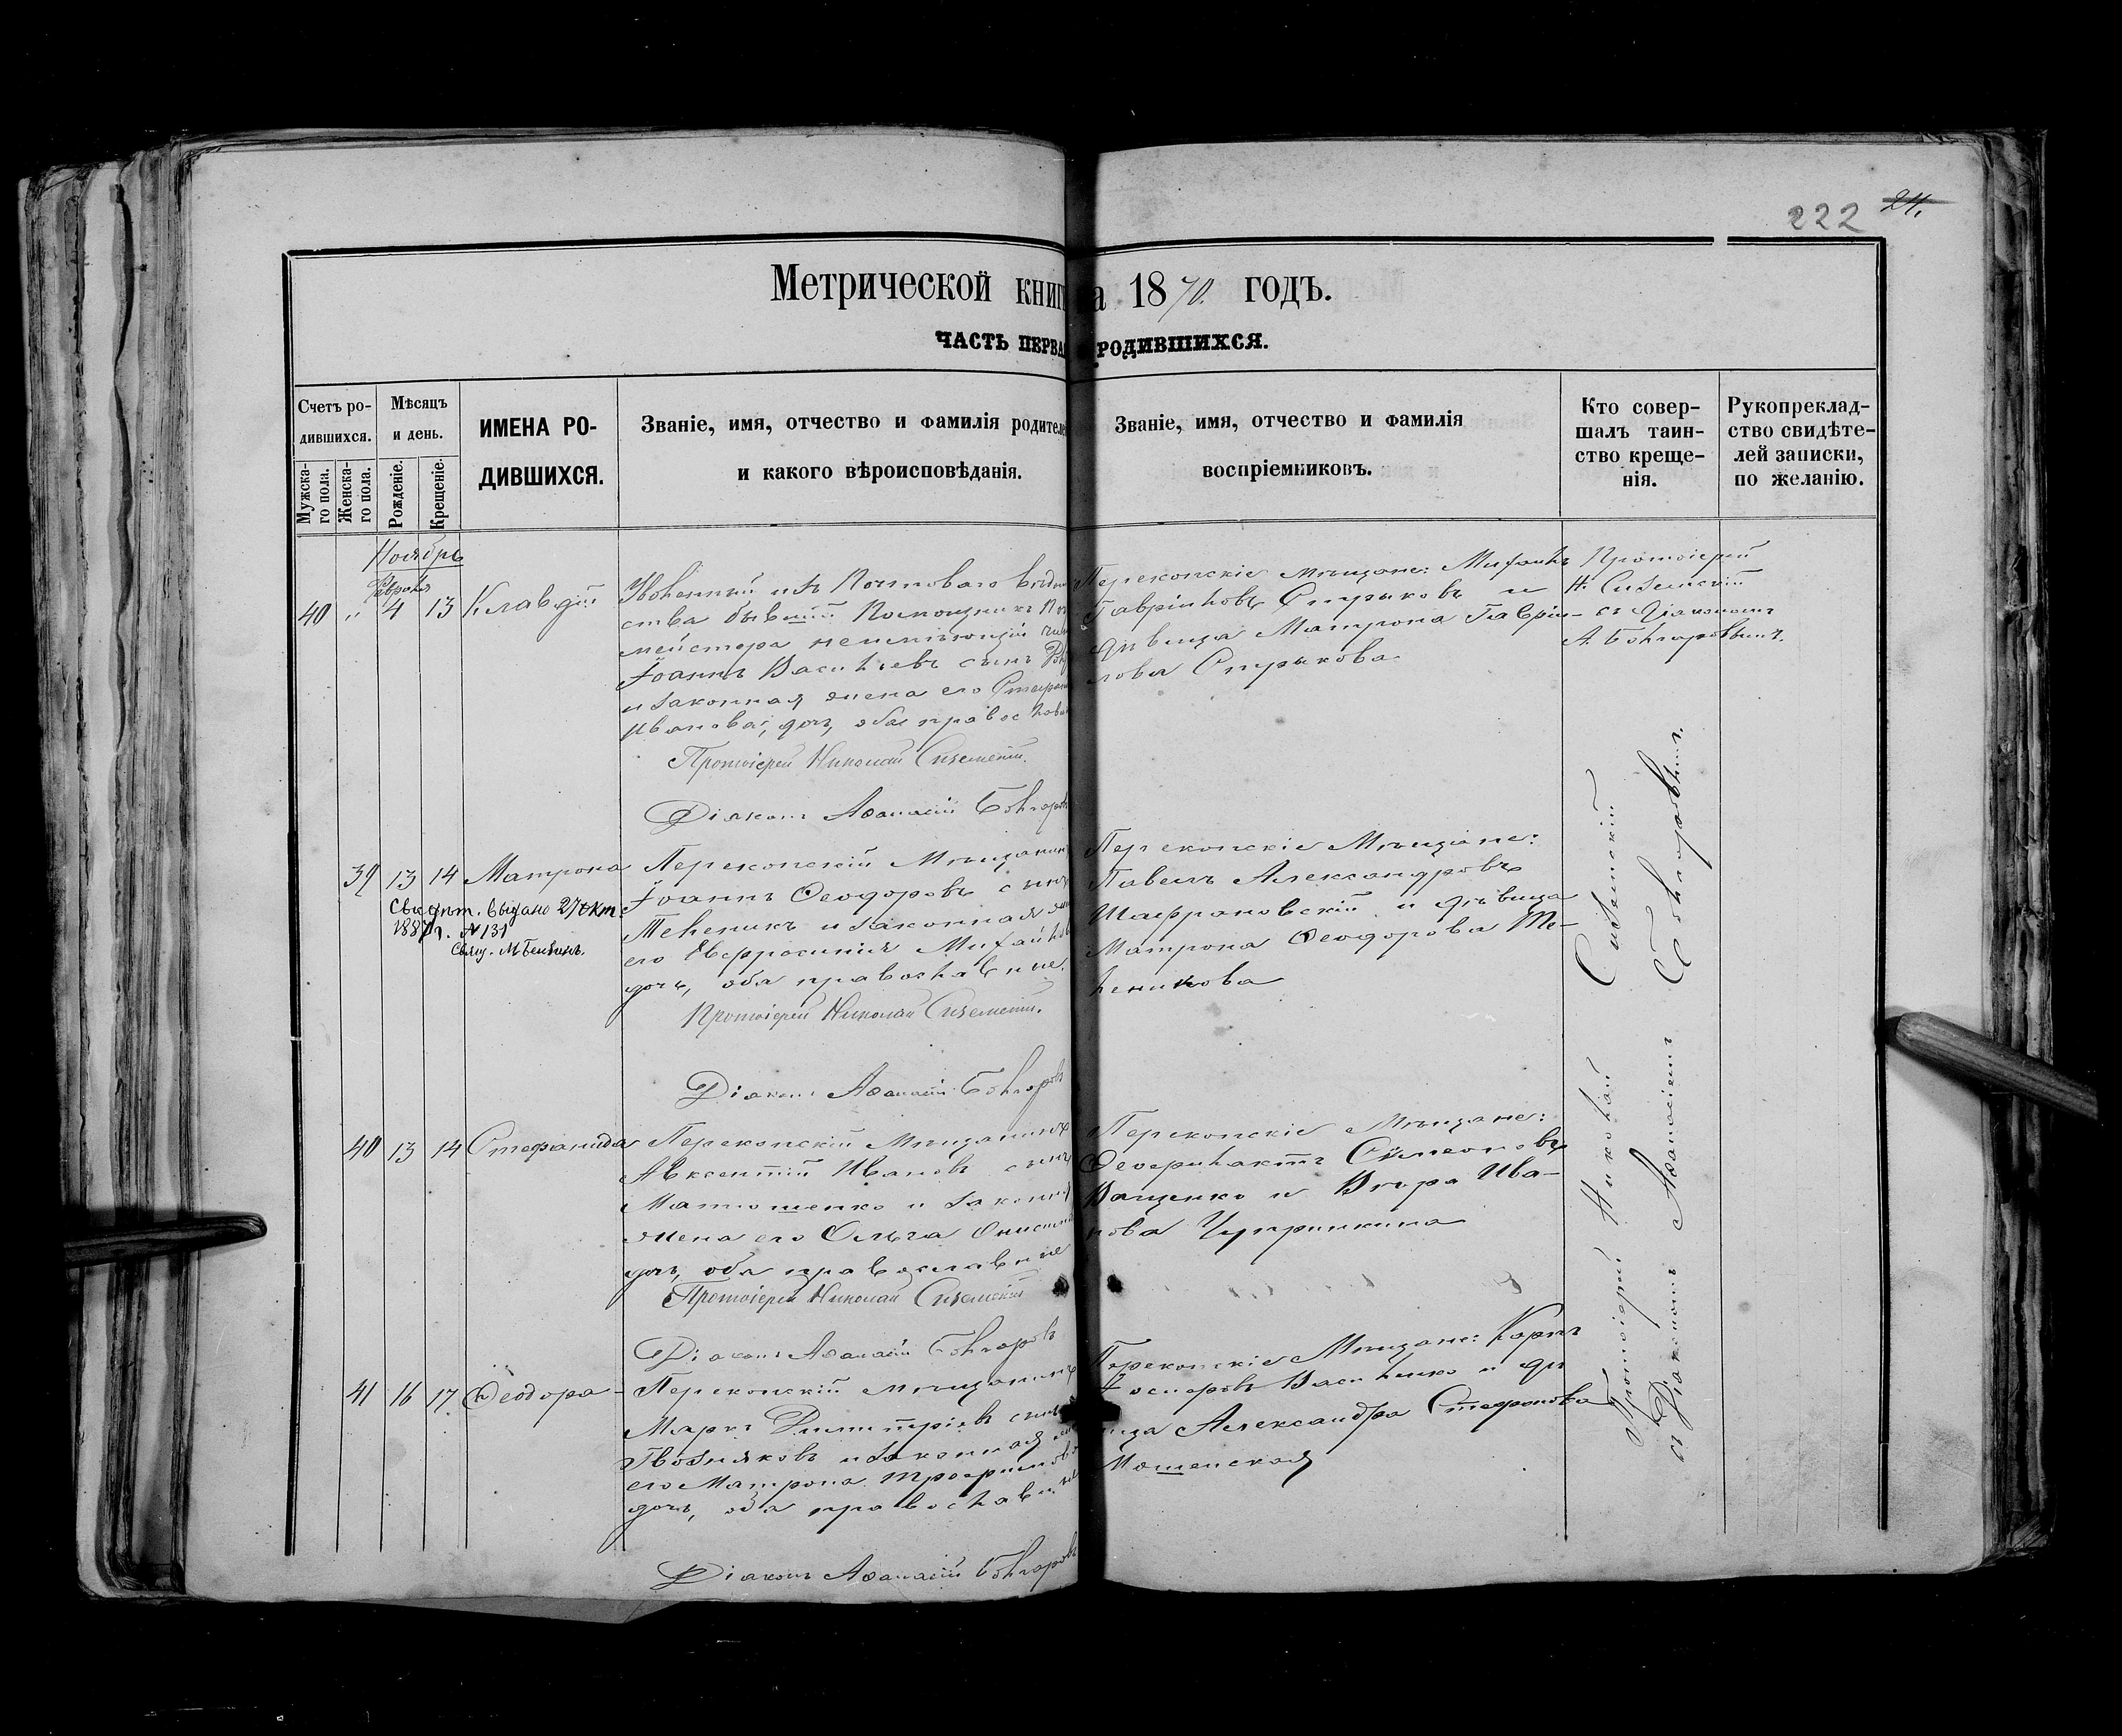 222 24.
Метрической книг а 1870. годъ.
ЧАСТЬ ПЕРВА РОДИВШИХСЯ.
Счетъ ро-
дившихся.
Мужска-
го пола.
Женска-
го пола.
Мѣсяцъ
и день.
Рожденіе.
Крещеніе.
ИМЕНА РО-
ДИВШИХСЯ.
Званіе, имя, отчество и фамилія родителе
и какого вѣроисповѣданія.
Званіе, имя, отчество и фамилія
воспріемниковъ.
Кто совер-
шалъ таин-
ство креще-
нія.
Рукоприклад-
ство свидѣте-
лей записки,
по желанію.
Ноябрь
Февраля
40 " 4 13 Клавдій
Уволенный изъ Почтоваго вѣдом
ства бывшій Помощникъ По
мейстера неимѣющій чин
Іоаннъ Васильевъ сынъ
и законная жена его Стефан
Иванова, дочь, оба православ
Протоіерей Николай Сиземскій.
Діаконъ Аѳанасій Болгаров
Перекопскіе мѣщане: Михаилъ
Гавріиловъ Стрыковъ и
дѣвица Матрона Гавріи-
лова Стрыкова
Протоіерей
Н. Сиземскій
съ Діакономъ
А. Болгаровымъ.
39 13 14 Матрона
Свидѣт. выдано 27 окт
188 г. №131
Свящ.
Перекопскій Мѣщанин
Іоаннъ Ѳеодоровъ сынъ
Теленикъ и законная жен
его Евфросинія Михайлов
дочь, оба православные.
Протоіерей Николай Сиземскій.
Діаконъ Аѳанасій Болгаровъ
Перекопскіе Мѣщане:
Павелъ Александровъ
Шафрановскій и дѣвица
Матрона Ѳеодорова Те-
леникова
40 13 14 Стефанида
Перекопскій Мѣщанинъ
Авксентій Ивановъ сынъ
Матюшенко и законна
жена его Ольга Онисим
дочь, оба православные
Протоіерей Николай Сиземскій
Діаконъ Аѳанасій Болгаровъ
Перекопскіе Мѣщане:
Ѳеофилактъ Симеоновъ
Ващенко и Вѣра Ива-
нова Чуприкина
41 16 17 Ѳеодора
Перекопскій мѣщанинъ
Маркъ Димитріевъ сынъ
Гвозняковъ и законная жен
его Матрона Трофимов
дочь, оба православн
Діаконъ Аѳанасій Болгаровъ
Перекопскіе Мѣщане: Карпъ
Іосифовъ Василенко и дѣ
вица Александра Стефанова
Мошенская
Протоіерей Николай Сиземскій
съ Діакономъ Аѳанасіемъ Болгаровымъ.